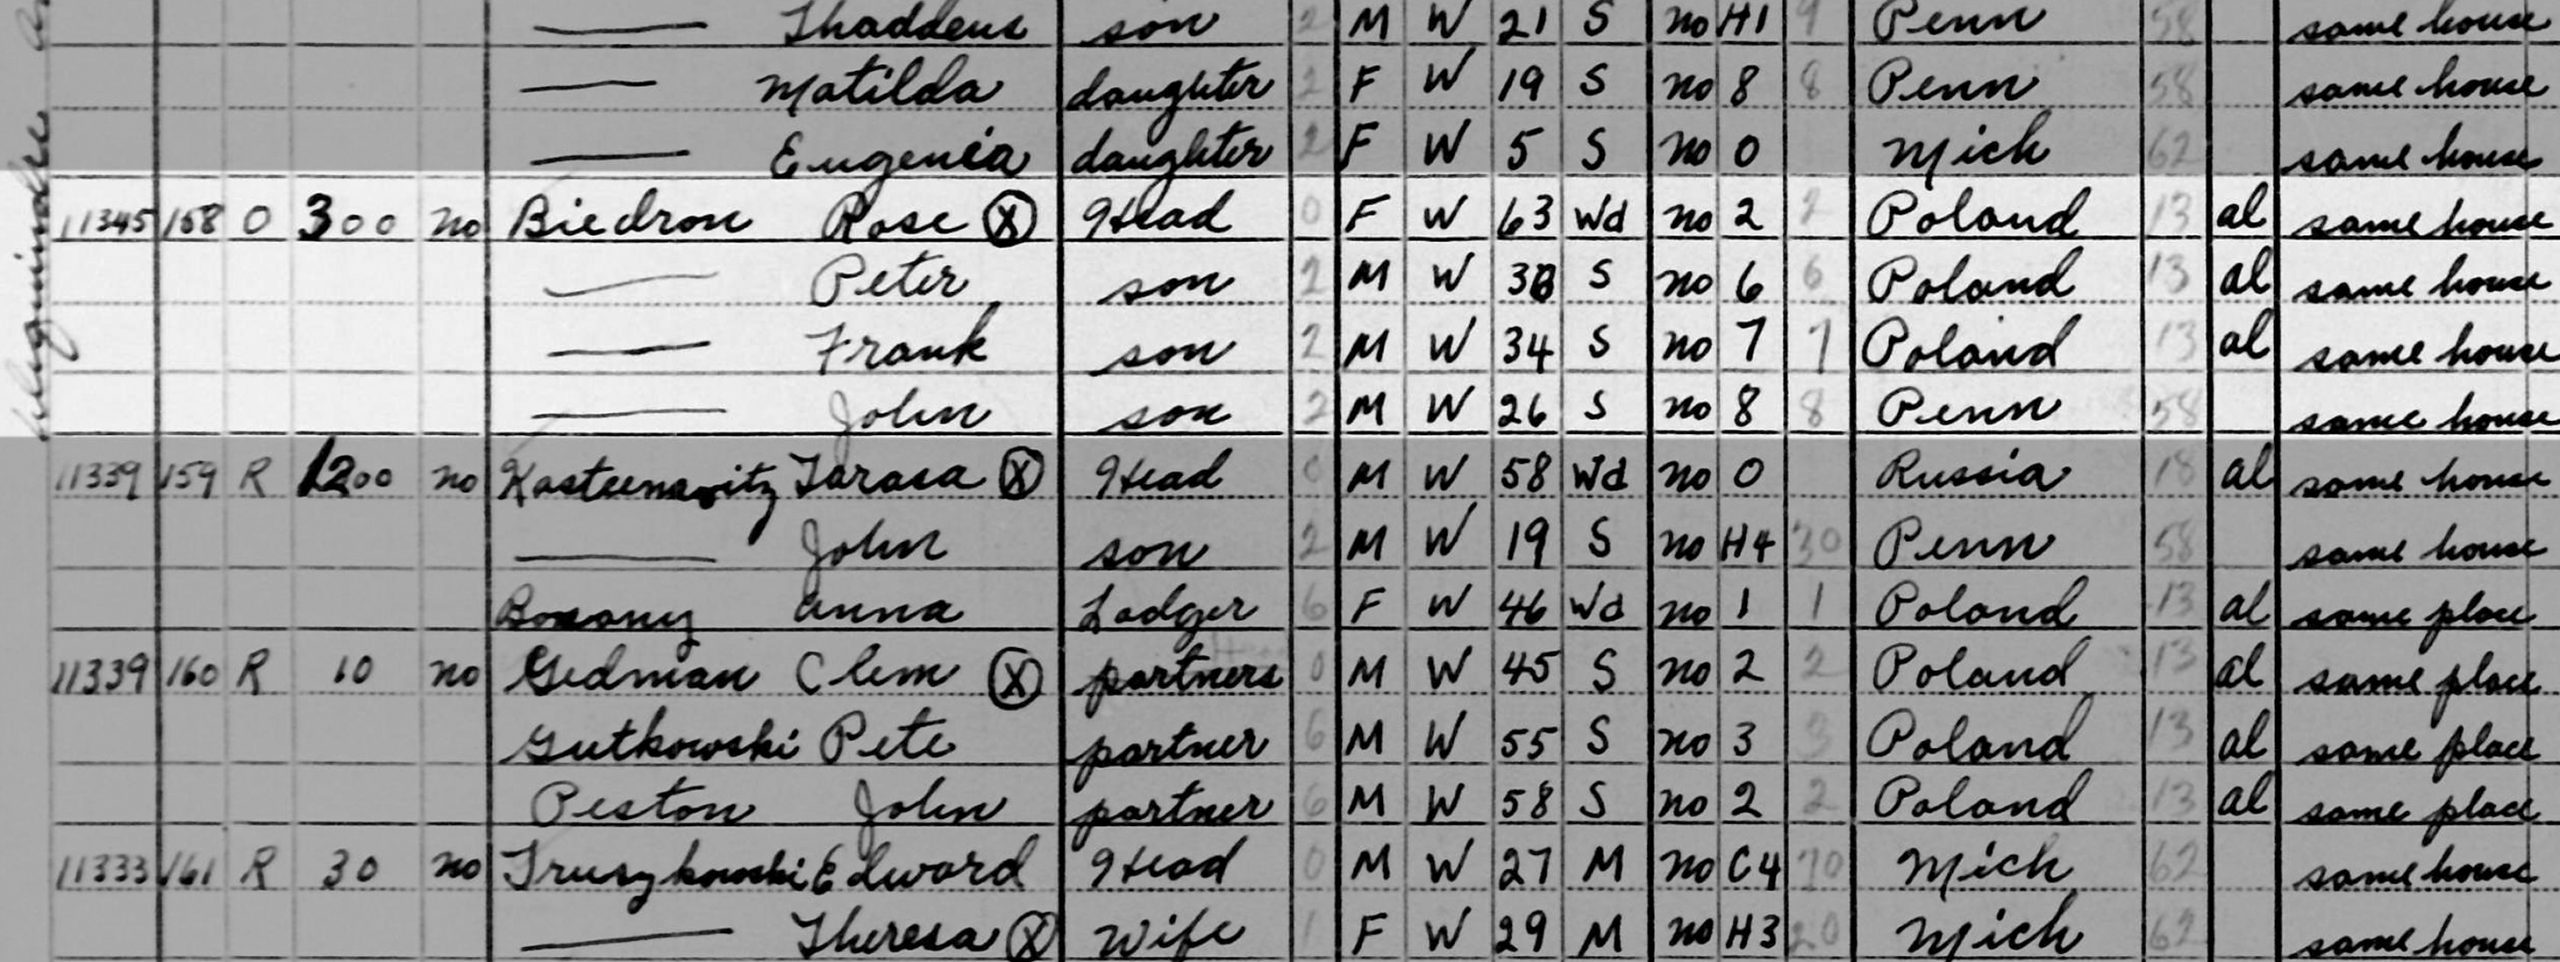 Thaddeus son 2 M W 21 S no H1 9 Penn 58 same house
Matilda daughter 2 F W 19 S no 8 8 Penn 58 same house
Eugenia daughter 2 F W 5 S no 0 Mich 62 same house
11345 158 O 300 no Biedron Rose X Head 0 F W 63 Wd no 2 2 Poland 13 al same house
Peter son 2 M W 38 S no 6 6 Poland 13 al same house
Frank son 2 M W 34 S no 7 7 Poland 13 al same house
John son 2 M W 26 S no 8 8 Penn 58 same house
11339 159 R 1200 no Tarasa X Head 0 M W 58 Wd no 0 Russia 18 al same house
John son 2 M W 19 S no H4 30 Penn 58 same house
Anna Lodger 6 F W 46 Wd no 1 1 Poland 13 al same place
11339 160 R 10 no Gedman Clem X partners 0 M W 45 S no 2 2 Poland 13 al same place
Gutkowski Pete partner 6 M W 55 S no 3 3 Poland 13 al same place
Peston John partner 6 M W 58 S no 2 2 Poland 13 al same place
11333 161 R 30 no Truszkowski Edward Head 0 M W 27 M no C4 70 Mich 62 same house
Theresa X Wife 1 F W 29 M no H3 20 Mich 62 same house